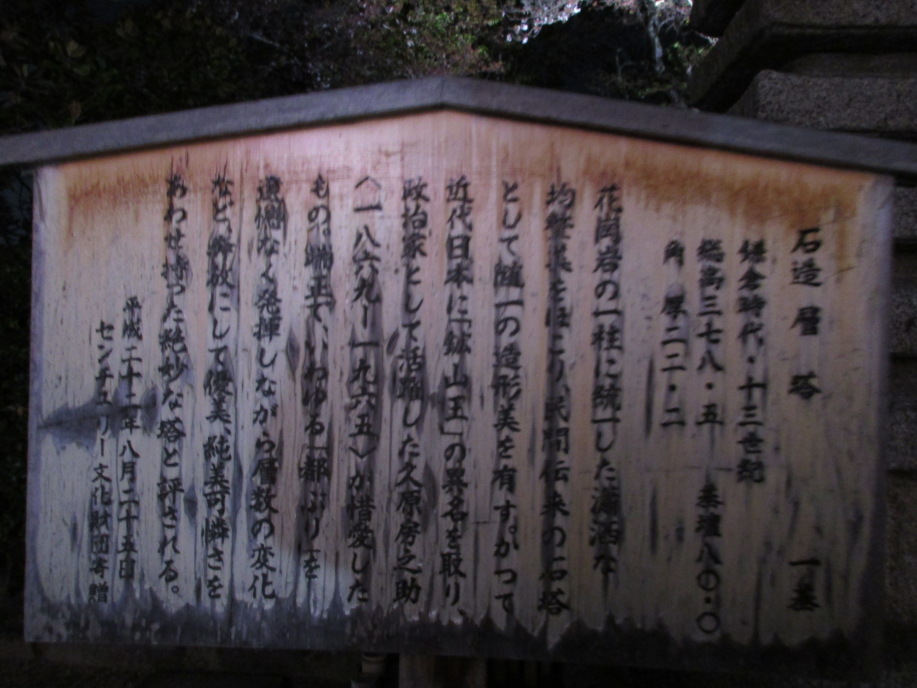 石造層塔 一基
鎌倉時代・十三世紀
総高三七八・五 基壇八〇・〇
角 厚二二・二
花崗岩の一柱に統一した瀟洒な
均整美をほこり、民間伝来の石塔
として随一の造形美を有す。かつて
近代日本に「鉱山王」の異名を取り、
政治家として活躍した久原房之助
(一八六九ー一九六五)が惜愛した
もの。端正で、いわゆる「都ぶり」を
遺憾なく発揮しながら層数の変化
など、幹枝にして優美、純美可憐さを
あわせ持った絶妙な塔と評される。
平成二十二年八月二十五日
センチュリー文化財団寄贈